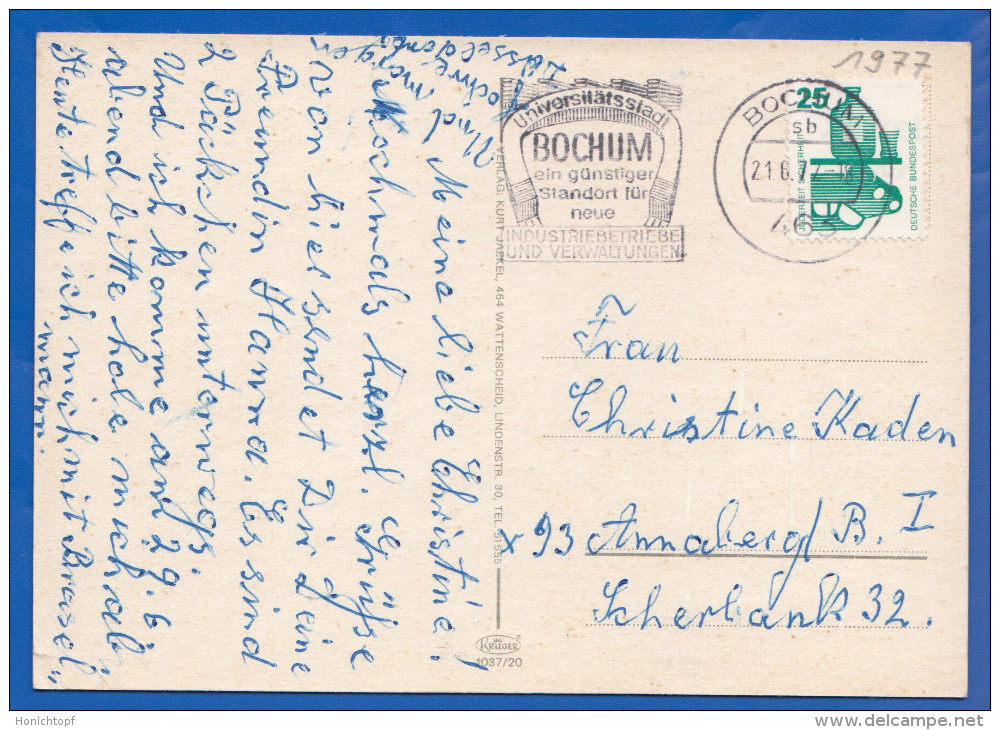 1977
Universitätsstadt
BOCHUM
ein günstiger
Standort für
neue
INDUSTRIEBETRIEBE
UND VERWALTUNGEN
BOCHUM
sb
21.6.77
463
25
JEDERZEIT SICHERHEIT
DEUTSCHE BUNDESPOST
Meine liebe Christine!
Nochmals herzl. Grüße
von hier sendet Dir Deine
Freundin Hanna. Es sind
2 Päckchen unterwegs.
Und ich komme am 29.6
abend bitte hole mich ab
Heute treffe ich mich mit Brasel"
mann.
VERLAG: KURT JAEKEL, 464 WATTENSCHEID, LINDENSTR. 30, TEL. 51555
KRÜGER
1037/20
Frau
Christine Kaden
x 93 Annaberg/B. I
Scherbank 32.
Honichtopf
www.delcampe.net